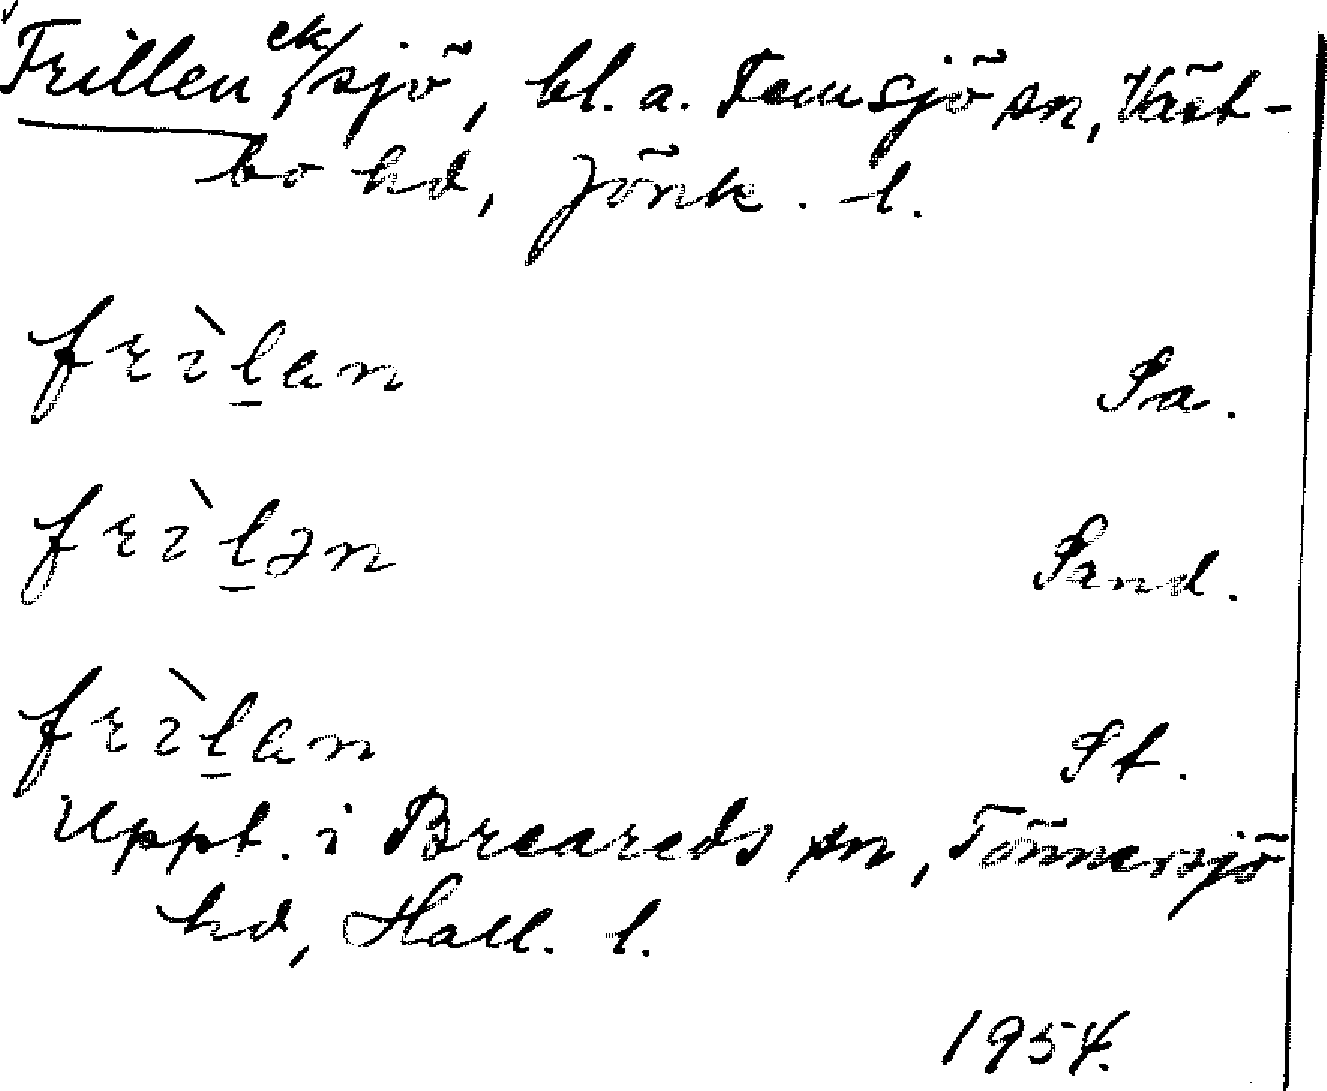 Frillen, ek/sjö, bl.a. Femsjö sn, Väst-
bo hd, Jönk. l.
frìlan Sa.
frìlən Sand.
frìlan St.
Uppt. i Breareds sn, Tönnersjö
hd, Hall. l.
1954.